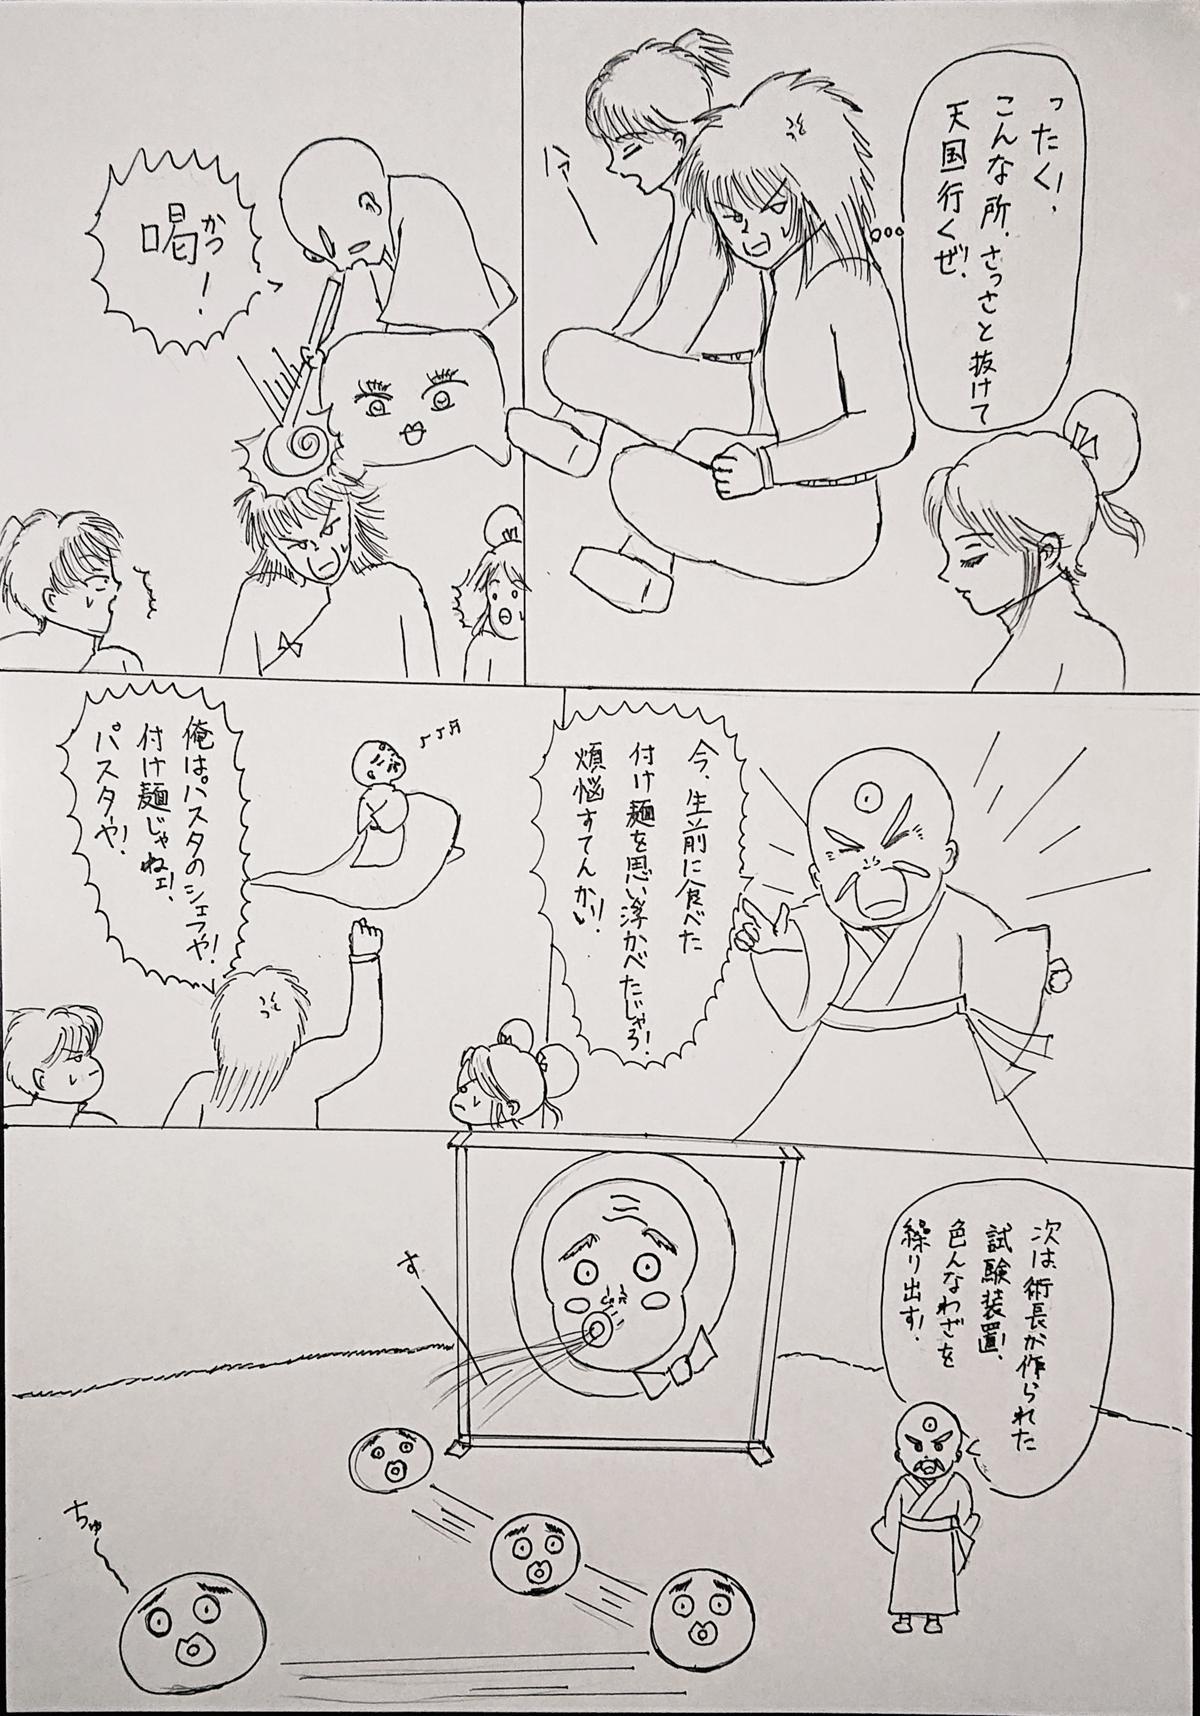 ったく!
こんな所、さっさと抜けて
天国行くぜ!
ハァ
喝!
かつ
今、生前に食べた
付け麺を思い浮かべたじゃろ!
煩悩すてんかい!
俺は、パスタのシェフや!
付け麺じゃねェ!
パスタや!
次は、術長が作られた
試験装置!
色んなわざを
繰り出す!
す
ちゅ